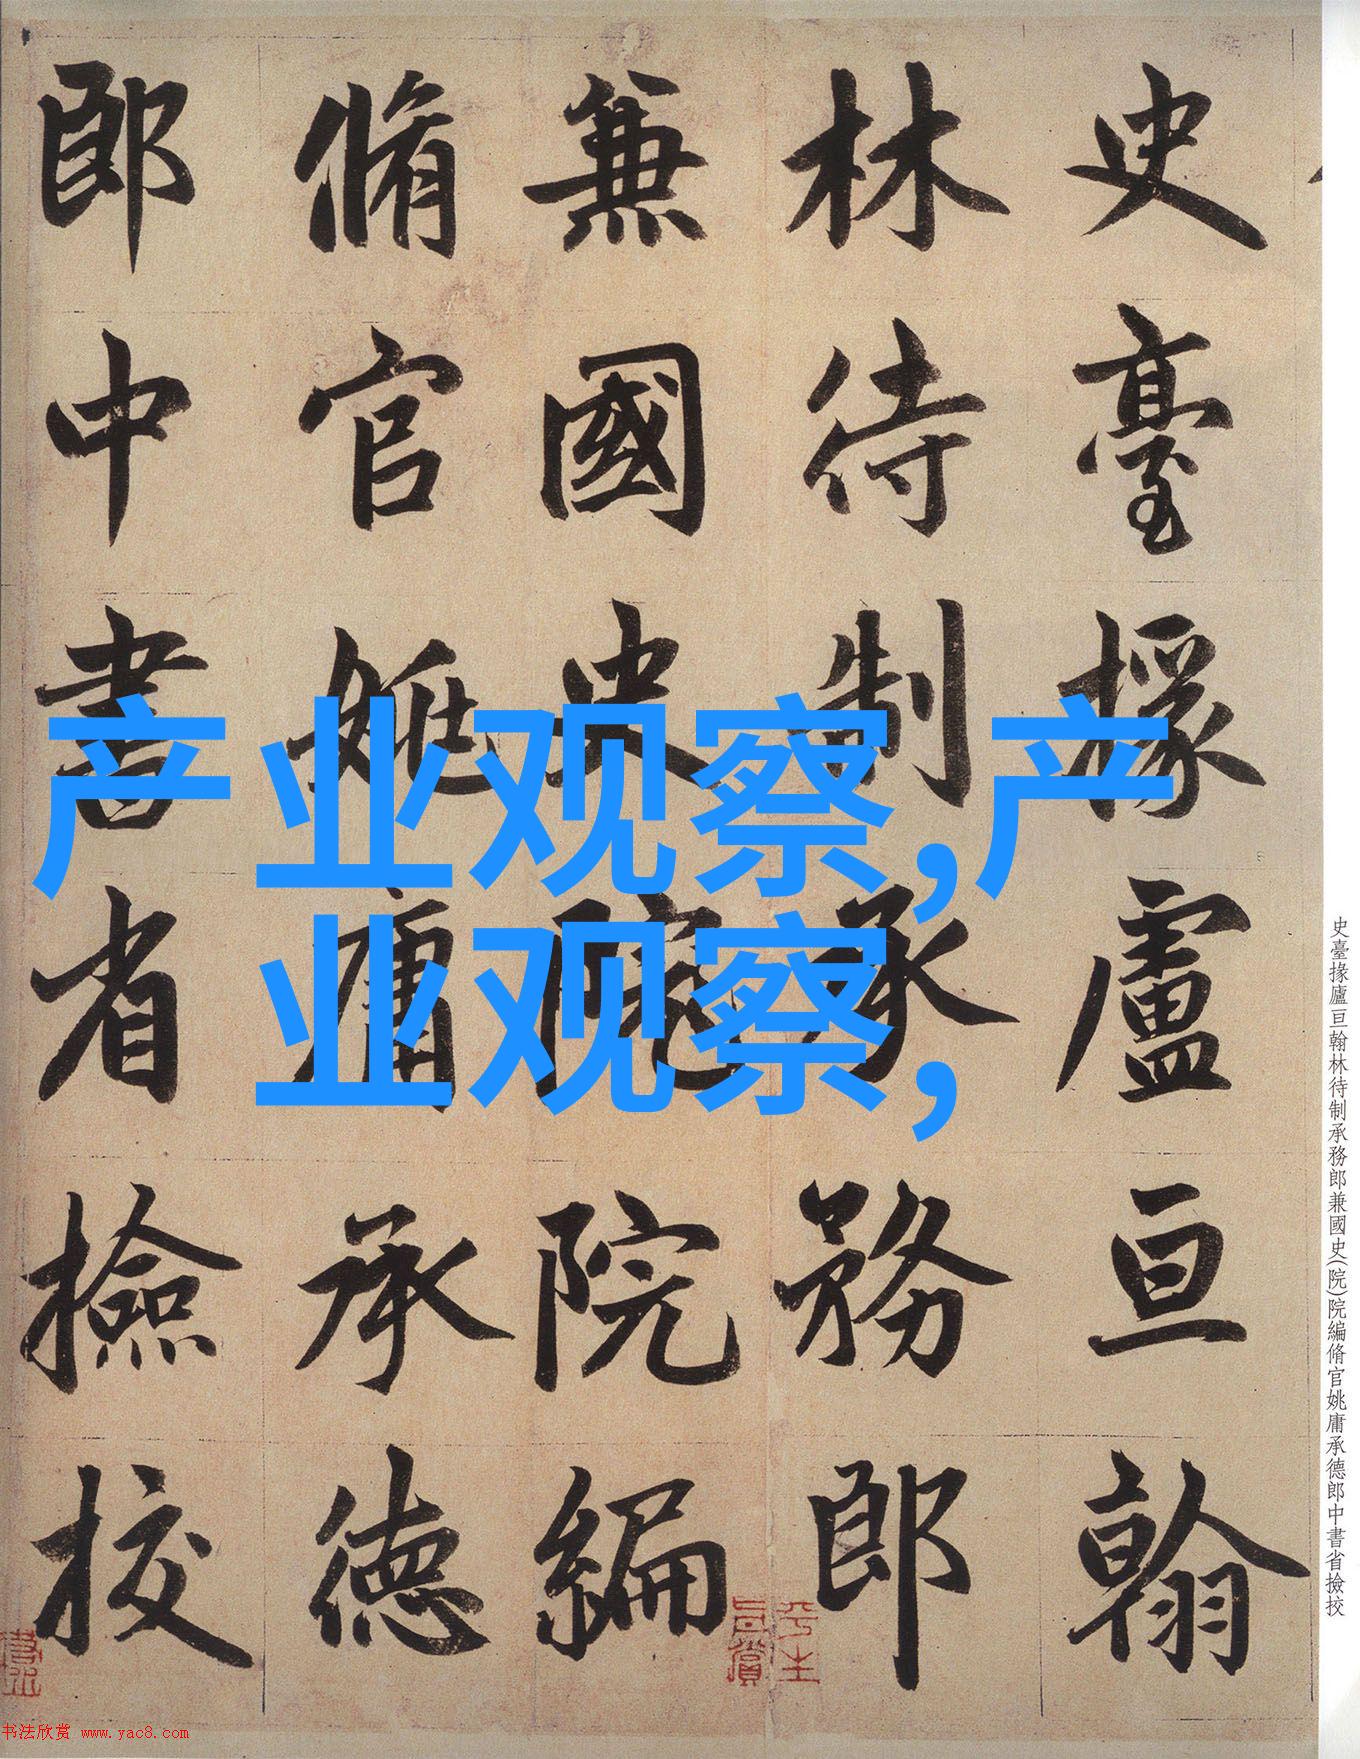 史臺掾廬亘翰
林待制承務郎
兼國史院院編
脩官姚庸承德
郎中書省撿挍
产业观察,产
业观察,
史臺掾廬亘翰林待制承務郎兼國史(院)院編脩官姚庸承德郎中書省撿挍
书法欣赏 www.yac8.com